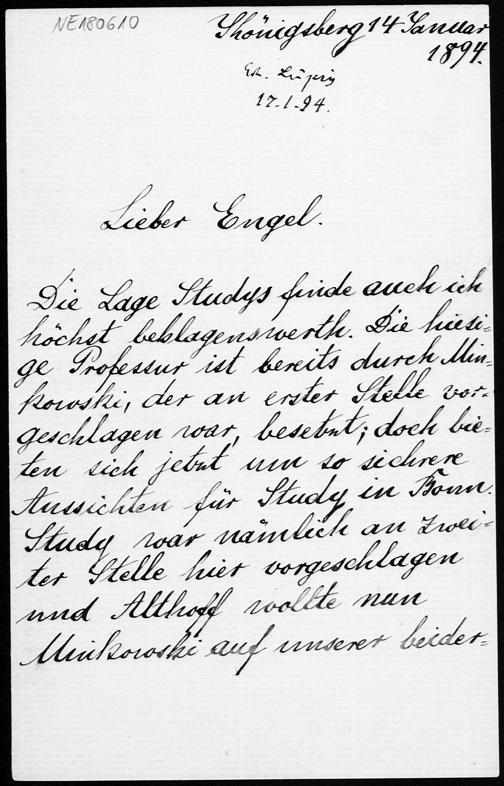 NE180610
Königsberg 14 Januar
1894.
Erh. Leipzig
17.1.94.
Lieber Engel.
Die Lage Studys finde auch ich
höchst beklagenswerth. Die hiesi-
ge Professur ist bereits durch Min-
kowski, der an erster Stelle vor-
geschlagen war, besetzt; doch bie-
ten sich jetzt um so sichrere
Aussichten für Study in Bonn.
Study war nämlich an zwei-
ter Stelle hier vorgeschlagen
und Althoff wollte nun
Minkowski auf unserer beider-